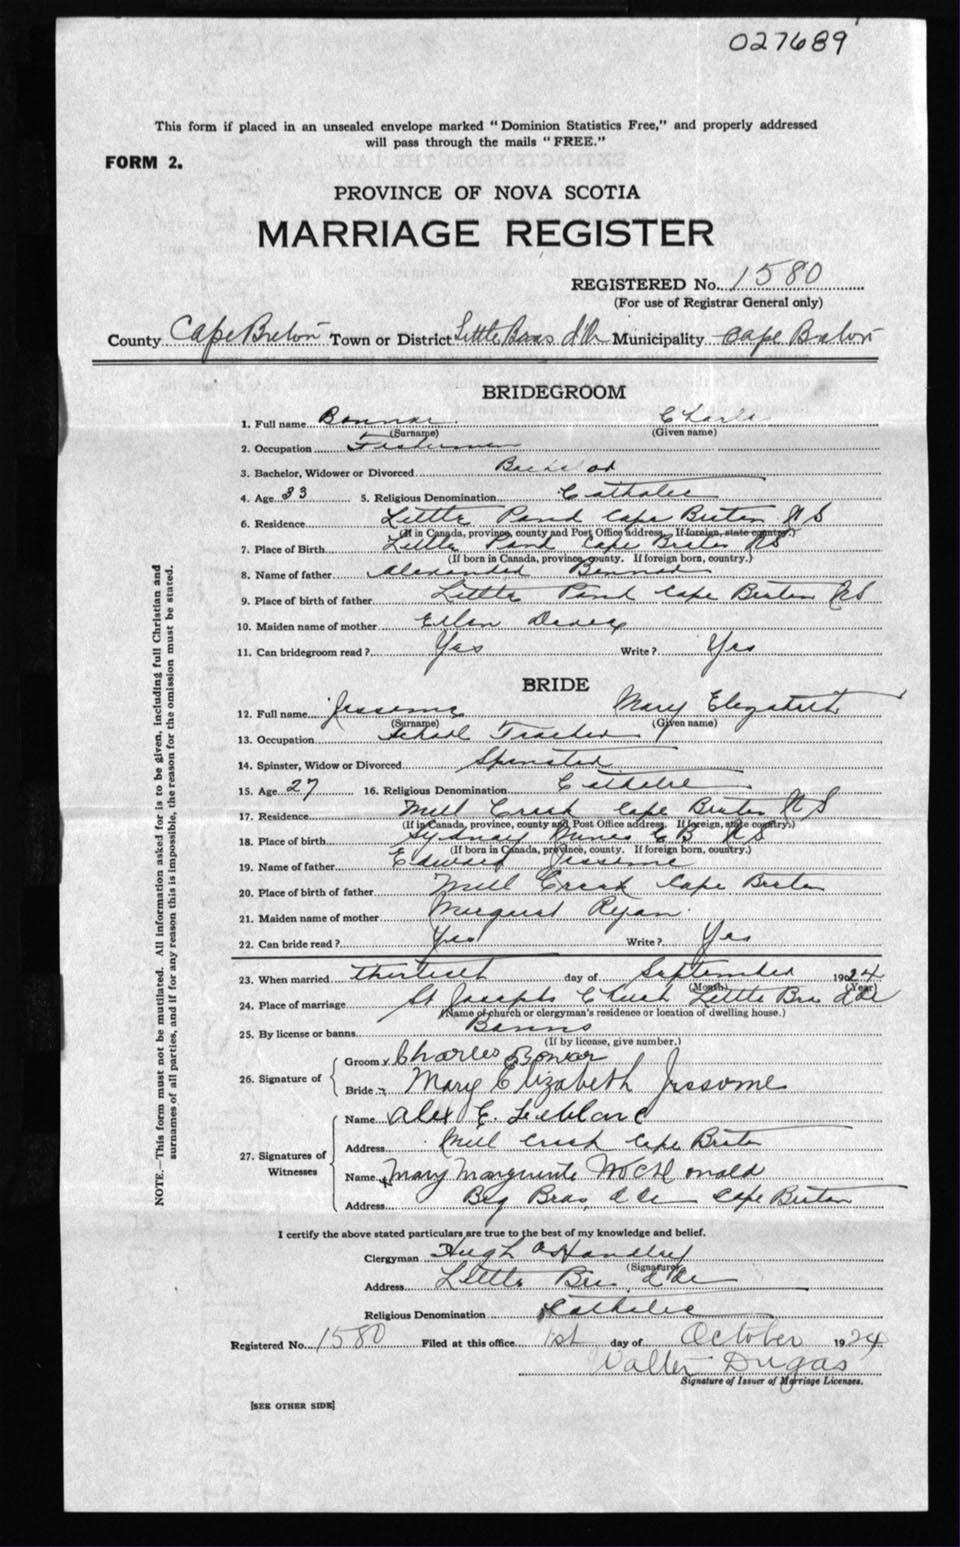 027689
This form if placed in an unsealed envelope marked "Dominion Statistics Free," and properly addressed
will pass through the mails "FREE."
FORM 2.
PROVINCE OF NOVA SCOTIA
MARRIAGE REGISTER
REGISTERED No. 1580
(For use of Registrar General only)
County Cape Breton Town or District Little Bras d'Or Municipality Cape Breton
BRIDEGROOM
1. Full name Charles
(Surname) (Given name)
2. Occupation Fisherman
3. Bachelor, Widower or Divorced Bachelor
4. Age 33 5. Religious Denomination Catholic
6. Residence Little Pond Cape Breton N S
(If in Canada, province, county and Post Office address. If foreign, state country.)
7. Place of Birth Little Pond Cape Breton N S
(If born in Canada, province, county. If foreign born, country.)
8. Name of father Alexander
9. Place of birth of father Little Pond Cape Breton N S
10. Maiden name of mother Ellen
11. Can bridegroom read? Yes Write? Yes
BRIDE
12. Full name Jessome Mary Elizabeth
(Surname) (Given name)
13. Occupation School Teacher
14. Spinster, Widow or Divorced Spinster
15. Age 27 16. Religious Denomination Catholic
17. Residence Mill Creek Cape Breton N S
(If in Canada, province, county and Post Office address. If foreign, state country.)
18. Place of birth Sydney Mines C B N S
(If born in Canada, province, county. If foreign born, country.)
19. Name of father Edward Jessome
20. Place of birth of father Mill Creek Cape Breton
21. Maiden name of mother Margaret Ryan
22. Can bride read? Yes Write? Yes
23. When married thirtieth day of September 1924
(Month) (Year)
24. Place of marriage St Josephs Church Little Bras d'Or
(Name of church or clergyman's residence or location of dwelling house.)
25. By license or banns Banns
(If by license, give number.)
26. Signature of
Groom x Charles
Bride x Mary Elizabeth Jessome
27. Signatures of Witnesses
Name Alex E. Leblanc
Address Mill Creek Cape Breton
Name x Mary Marguerite McDonald
Address Big Bras d'Or Cape Breton
I certify the above stated particulars are true to the best of my knowledge and belief.
Clergyman Hugh
(Signature)
Address Little Bras d'Or
Religious Denomination Catholic
Registered No. 1580 Filed at this office 1st day of October 1924
Walter Dugas
Signature of Issuer of Marriage Licenses.
[SEE OTHER SIDE]
NOTE.—This form must not be mutilated. All information asked for is to be given, including full Christian and
surnames of all parties, and if for any reason this is impossible, the reason for the omission must be stated.